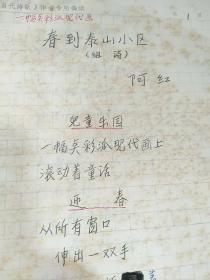 一幅关彩派现代画
1
春到泰山小区
(组诗)
阿红
儿童乐园
一幅关彩派现代画上
滚动着童话
迎春
从所有窗口
伸出一双手